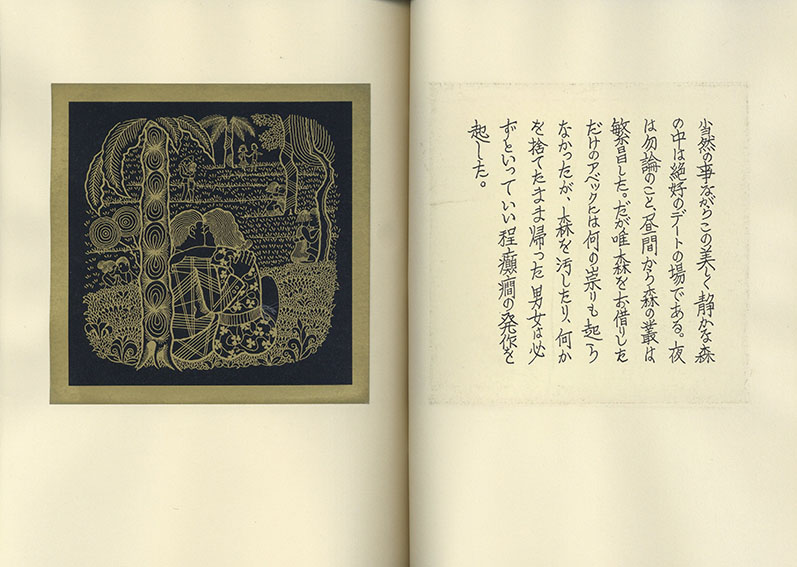 当然の事ながらこの美しく静かな森
の中は絶好のデートの場である。夜
は勿論のこと、昼間から森の叢は
繁昌した。だが唯森をお借りした
だけのアベックには何の祟りも起ら
なかったが、森を汚したり、何か
を捨てたまま帰った男女は必
ずといっていい程癲癇の発作を
起した。